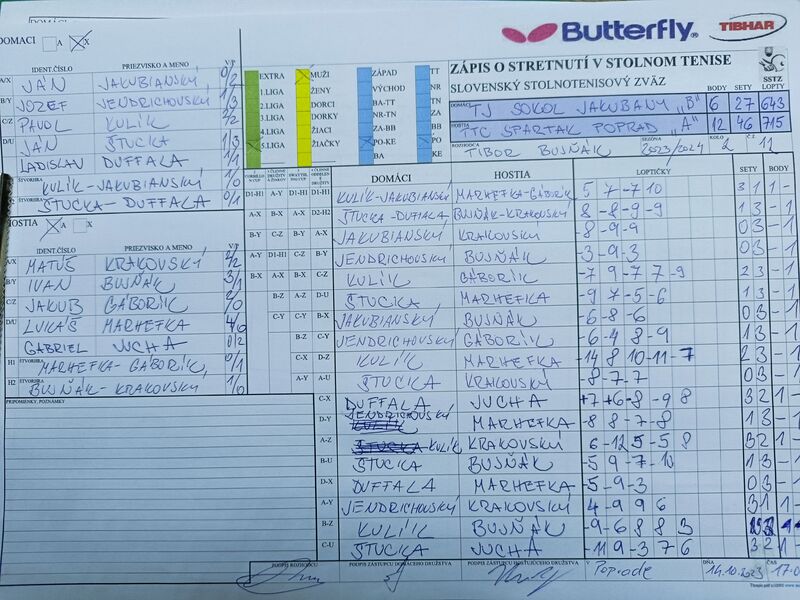 Butterfly
TIBHAR
DOMACI A X
ZÁPIS O STRETNUTÍ V STOLNOM TENISE
SLOVENSKÝ STOLNOTENISOVÝ ZVÄZ
SSTZ
BODY SETY LOPTY
DOMÁCI TJ SOKOL JAKUBANY "B" 6 27 643
HOSTIA TTC SPARTAK POPRAD "A" 12 46 715
ROZHODCA TIBOR BUJŇÁK SEZÓNA 2023/2024 KOLO 2 Č.Z. 11
IDENT.ČÍSLO PRIEZVISKO A MENO V/P
A/X JÁN JAKUBIANSKÝ 0/2
B/Y JOZEF JENDRICHOVSKÝ 1/3
C/Z PAVOL KULÍK
D/U JÁN ŠTUCKA 1/3
LADISLAV DUFFALA 1/1
ŠTVORHRA KULÍK-JAKUBIANSKÝ 1/0
ŠTUCKA-DUFFALA 0/1
EXTRA
1.LIGA
2.LIGA
3.LIGA
4.LIGA
5.LIGA
MUŽI
ŽENY
DORCI
DORKY
ŽIACI
ŽIAČKY
ZÁPAD
VÝCHOD
BA-TT
NR-TN
ZA-BB
PO-KE
BA
TT
NR
TN
ZA
BB
PO
KE
HOSTIA A X
IDENT.ČÍSLO PRIEZVISKO A MENO V/P
MATÚŠ KRAKOVSKÝ 2/2
B/Y IVAN BUJŇÁK 3/1
C/Z JAKUB GÁBORÍK
D/U LUKÁŠ MARHEFKA 4/0
GABRIEL JUCHA 0/2
H1 ŠTVORHRA MARHEFKA-GÁBORÍK 0/1
H2 BUJŇÁK-KRAKOVSKÝ 1/0
PRIPOMIENKY, POZNÁMKY
DOMÁCI HOSTIA LOPTIČKY SETY BODY
D1-H1 A-Y D1-H1 D1-H1 KULÍK-JAKUBIANSKÝ MARHEFKA-GÁBORÍK 5 7 -7 10 3 1 1 -
A-X B-X A-X D2-H2 ŠTUCKA-DUFFALA BUJŇÁK-KRAKOVSKÝ 8 -8 -9 -9 1 3 - 1
B-Y C-Z B-Y A-X JAKUBIANSKÝ KRAKOVSKÝ -8 -9 -9 0 3 - 1
A-Y D1-H1 C-Z B-Y JENDRICHOVSKÝ BUJŇÁK -3 -9 -3 0 3 - 1
B-X A-X B-X C-Z KULÍK GÁBORÍK -7 9 -7 7 -9 2 3 - 1
B-Z A-Z D-U ŠTUCKA MARHEFKA -9 7 -5 -6 1 3 - 1
C-Y C-Y B-X JAKUBIANSKÝ BUJŇÁK -6 -8 -6 0 3 - 1
B-Z C-Y JENDRICHOVSKÝ GÁBORÍK -6 -4 8 -9 1 3 - 1
C-X D-Z KULÍK MARHEFKA -14 8 10 -11 -7 2 3 - 1
A-Y A-U ŠTUCKA KRAKOVSKÝ -8 -7 -7 0 3 - 1
C-X DUFFALA JUCHA +7 +6 -8 -9 8 3 2 1 -
D-Y JENDRICHOVSKÝ MARHEFKA -8 8 -7 -8 1 3 - 1
A-Z KULÍK KRAKOVSKÝ 6 -12 5 -5 8 3 2 1 -
B-U ŠTUCKA BUJŇÁK -5 9 -7 -10 1 3 - 1
D-X DUFFALA MARHEFKA -5 -9 -3 0 3 - 1
A-Y JENDRICHOVSKÝ KRAKOVSKÝ 4 -9 9 6 3 1 1 -
B-Z KULÍK BUJŇÁK -9 -6 8 8 3
C-U ŠTUCKA JUCHA -11 9 -3 7 6 3 2 1 -
PODPIS ROZHODCU PODPIS ZÁSTUPCU DOMÁCEHO DRUŽSTVA PODPIS ZÁSTUPCU HOSŤUJÚCEHO DRUŽSTVA V Poprade DŇA 14.10.2023 ČAS